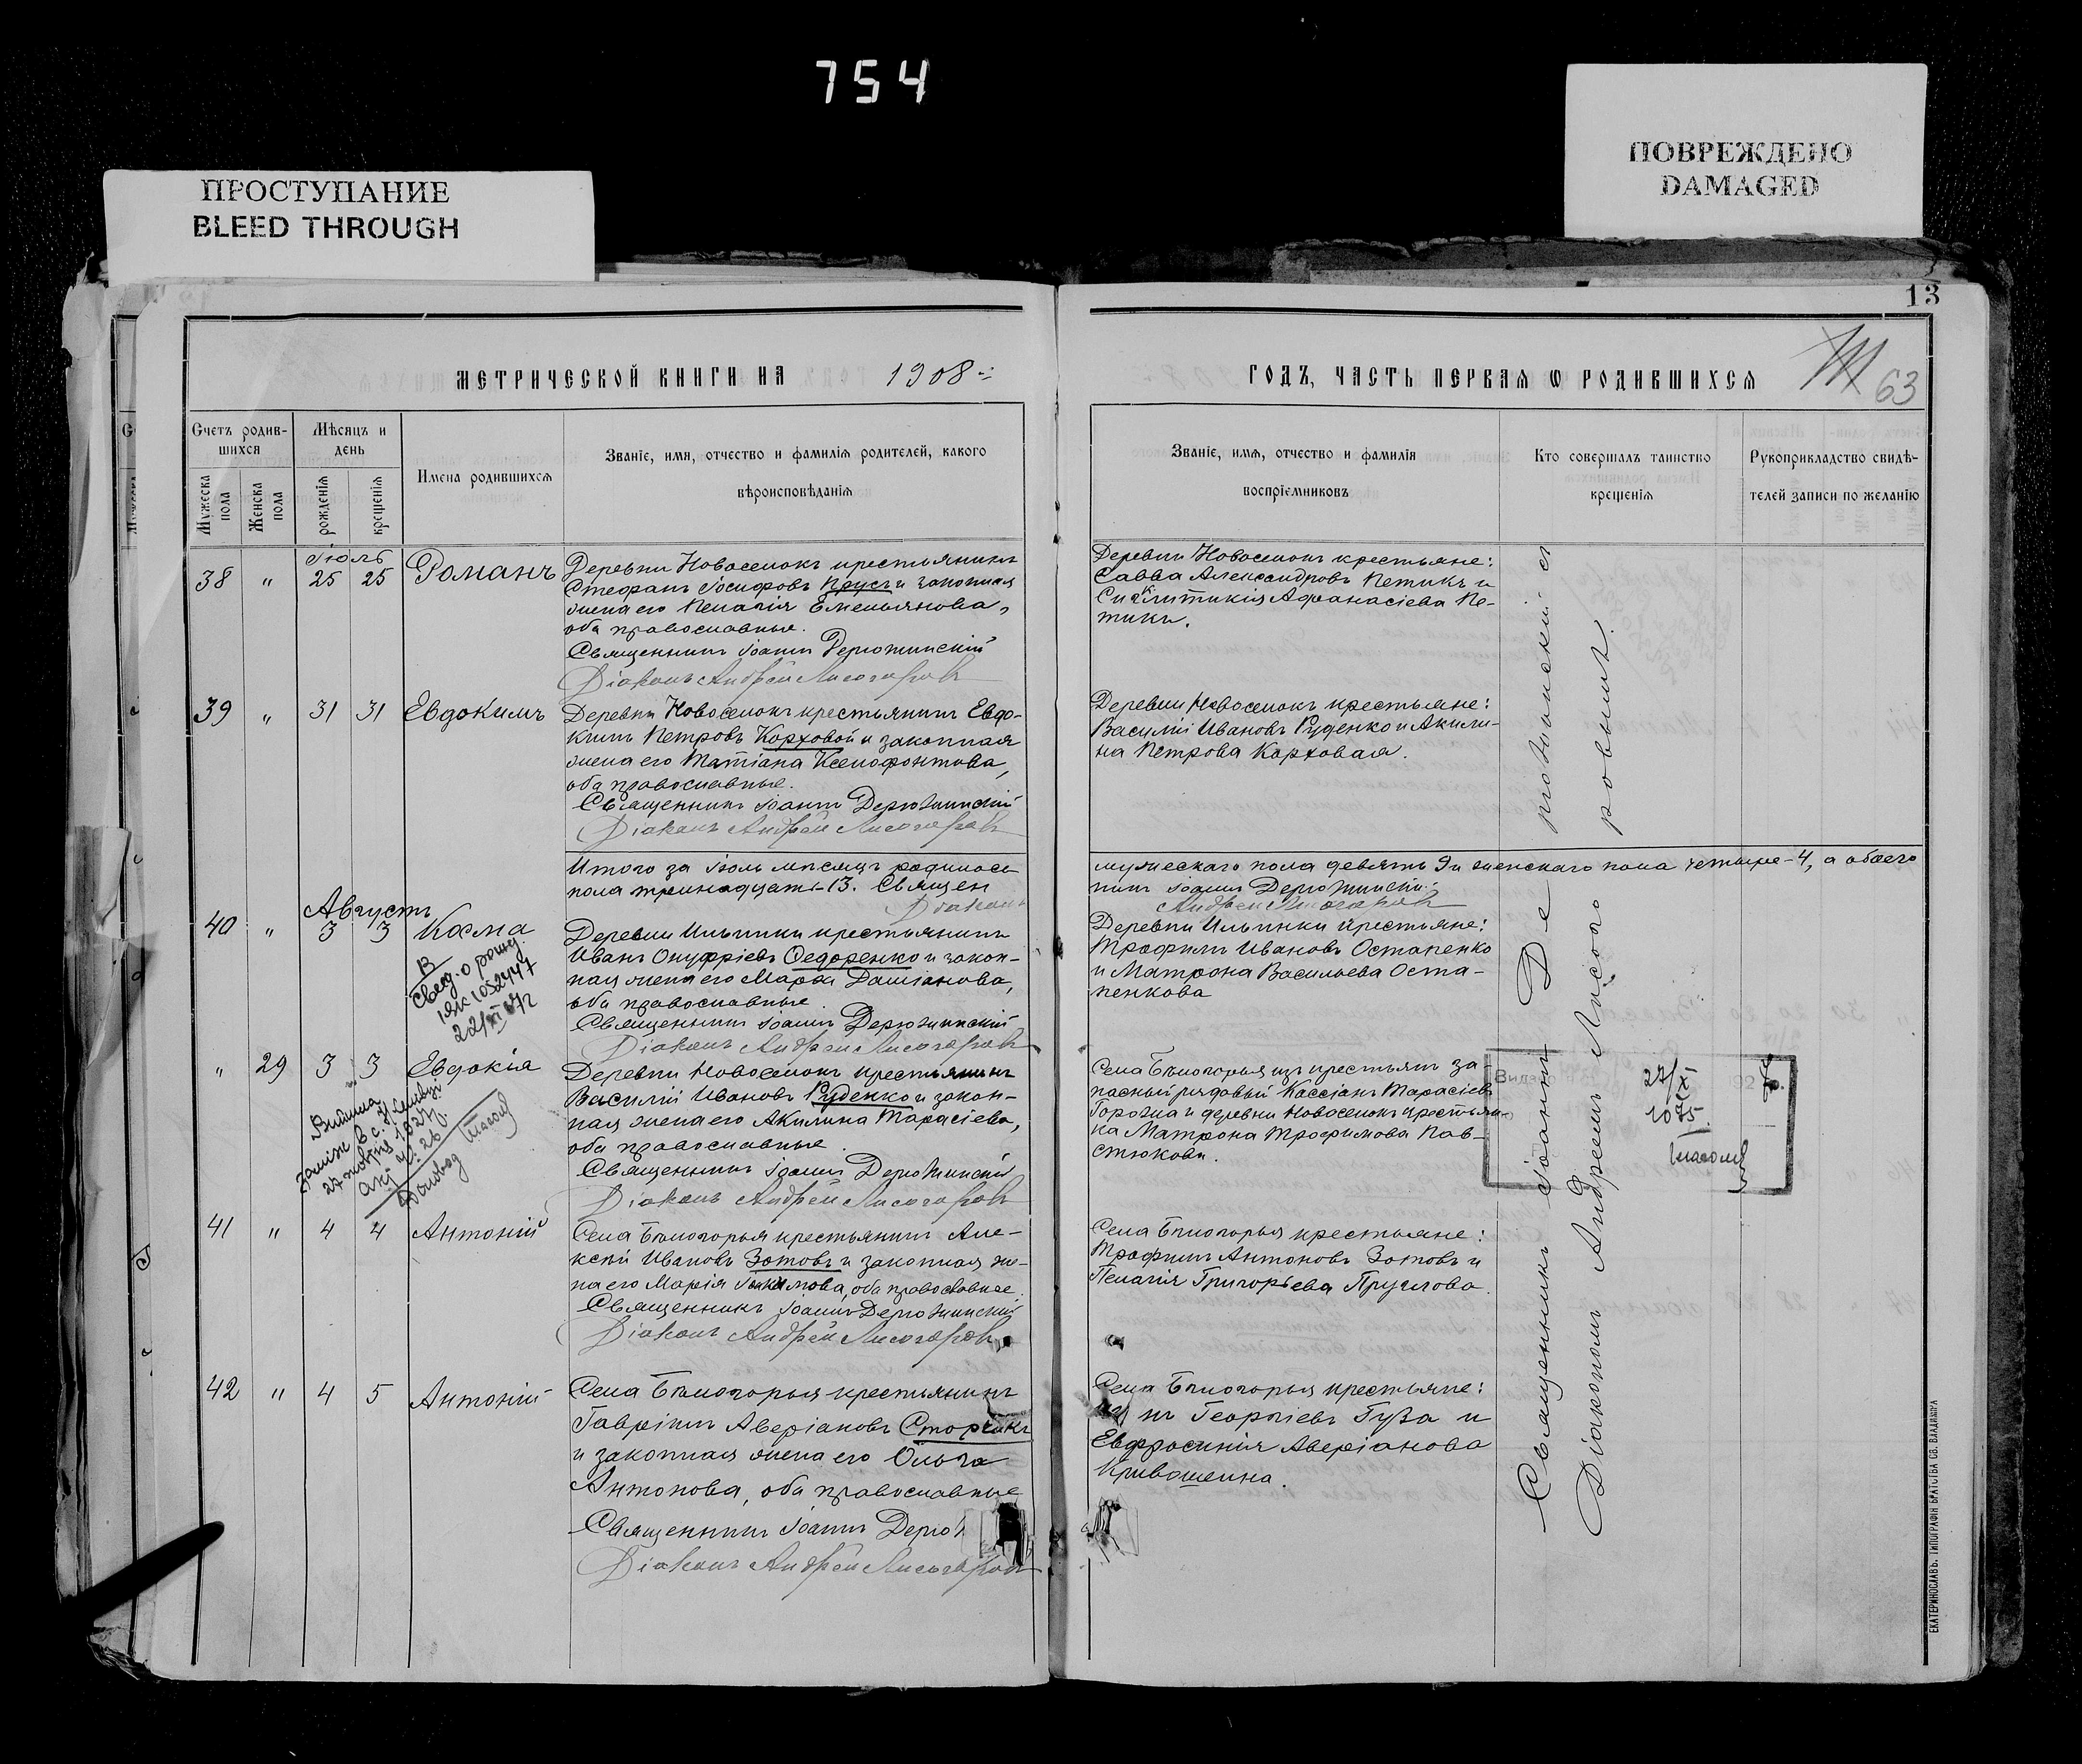 754
ПРОСТУПАНИЕ
BLEED THROUGH
ПОВРЕЖДЕНО
DAMAGED
13
МЕТРИЧЕСКОЙ КНИГИ НА 1908
Счетъ родив-
шихся
Мѣсяцъ и
день
Мужеска
пола
Женска
пола
рожденія
крещенія
Имена родившихся
Званіе, имя, отчество и фамилія родителей, какого
вѣроисповѣданія
Іюль
38 " 25 25 Романъ
Деревни Новоселокъ крестьянинъ
Стефанъ Іосифовъ Прусъ и законная
жена его Пелагія Емельянова,
оба православные.
Священникъ Іоаннъ Дерюжинскій
Діаконъ Андрей Лисогоровъ
39 " 31 31 Евдокимъ
Деревни Новоселокъ крестьянинъ Евдо-
кимъ Петровъ Корховой и законная
жена его Татіана Ксенофонтова,
оба православные.
Священникъ Іоаннъ Дерюжинскій
Діаконъ Андрей Лисогоровъ
Итого за Іюль мѣсяцъ родилось
пола тринадцать-13. Священ
Діаконъ
Августъ
40 " 3 3 Косма
В
Свед. о рожд.
Деревни Ильинки крестьянинъ
Иванъ Онуфріевъ Ѳедоренко и закон-
ная жена его Марѳа Даміанова,
оба православные.
Священникъ Іоаннъ Дерюжинскій
Діаконъ Андрей Лисогоровъ
" 29 3 3 Евдокія
Деревни Новоселокъ крестьянинъ
Василій Ивановъ Руденко и закон-
ная жена его Акилина Тарасіева,
оба православные.
Священникъ Іоаннъ Дерюжинскій
Діаконъ Андрей Лисогоровъ
41 " 4 4 Антоній
Села Бѣлогорья крестьянинъ Але-
ксѣй Ивановъ Зотовъ и законная же-
на его Марія Іоакимова, оба православные.
Священникъ Іоаннъ Дерюжинскій
Діаконъ Андрей Лисогоровъ
42 " 4 5 Антоній
Села Бѣлогорья крестьянинъ
Гавріилъ Аверіановъ Сторчакъ
и законная жена его Ольга
Антонова, оба православные
Священникъ Іоаннъ Дерю
Діаконъ Андрей Лисогоровъ
ГОДЪ, ЧАСТЬ ПЕРВАЯ Ѡ РОДИВШИХСЯ
63
Званіе, имя, отчество и фамилія
воспріемниковъ
Кто совершалъ таинство
крещенія
Рукоприкладство свидѣ-
телей записи по желанію
Деревни Новоселокъ крестьяне:
Савва Александровъ Петикъ и
Синклитикія Аѳанасіева Пе-
тики.
Деревни Новоселокъ крестьяне:
Василій Ивановъ Руденко и Акили-
на Петрова Корховая.
мужескаго пола девять 9 и женскаго пола четыре-4, а обоего
никъ Іоаннъ Дерюжинскій
Андрей Лисогоровъ
Деревни Ильинки крестьяне:
Трофимъ Ивановъ Остапенко
и Матрона Васильева Оста-
пенкова
Села Бѣлогорья изъ крестьянъ за-
пасный рядовый Кассіанъ Тарасіевъ
Горожа и деревни Новоселокъ крестьян-
ка Матрона Трофимова Пав-
стюкова.
Села Бѣлогорья крестьяне:
Трофимъ Антоновъ Зотовъ и
Пелагія Григорьева Пруглова.
Села Бѣлогорья крестьяне:
нъ Георгіевъ Гуза и
Евфросинія Аверіанова
Кривошеина.
Священникъ Іоаннъ Дерюжинскій съ
Діакономъ Андреемъ Лисогоровымъ.
27/XI
1075
ЕКАТЕРИНОСЛАВЪ. ТИПОГРАФІЯ БРАТСТВА СВ. ВЛАДИМІРА